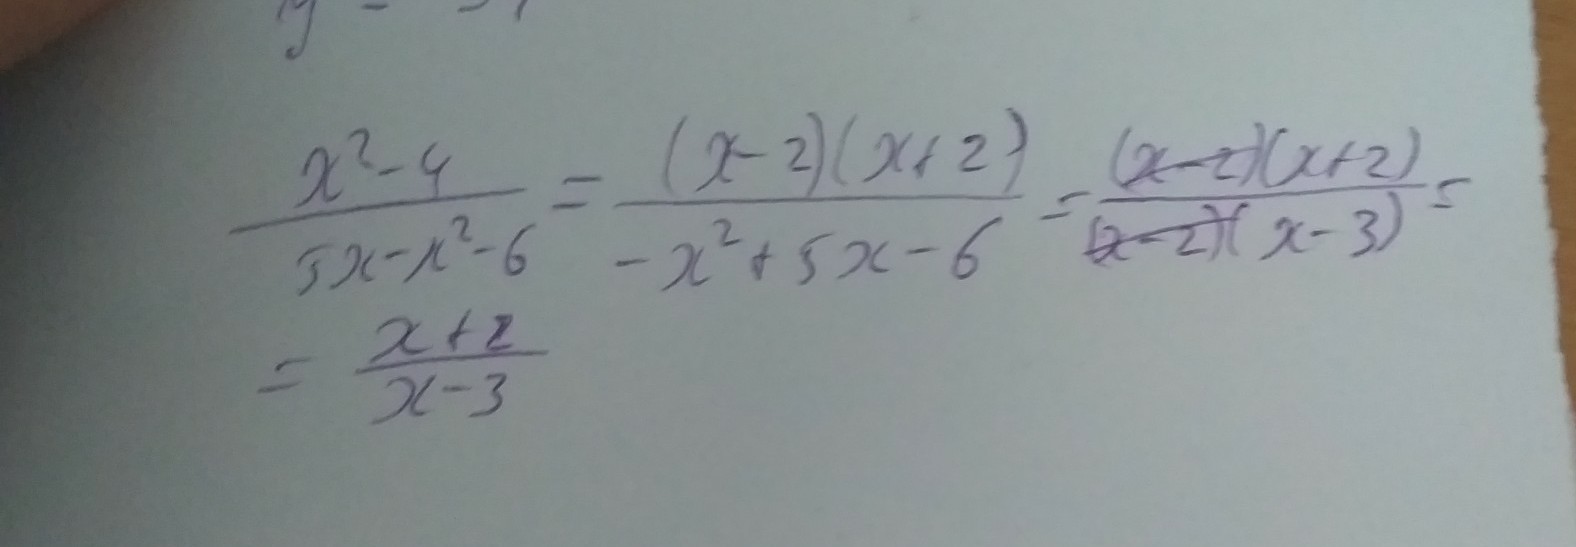 y =
x²-4 / 5x-x²-6 = (x-2)(x+2) / -x²+5x-6 = (x-2)(x+2) / (x-2)(x-3) =
= x+2 / x-3